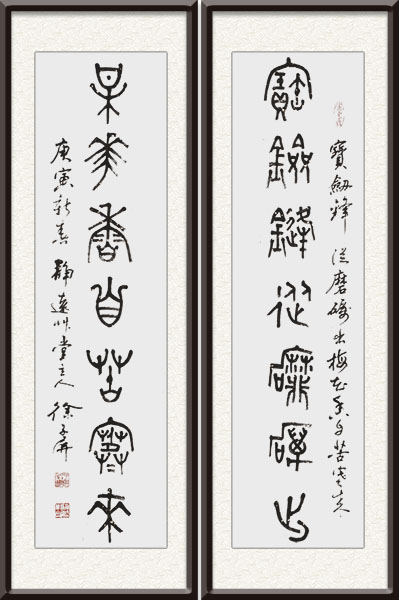 寶劍鋒從磨礪出梅花香自苦寒來
寶劍鋒從磨礪出
梅華香自苦寒來
庚寅新春靜遠艸堂主人徐子